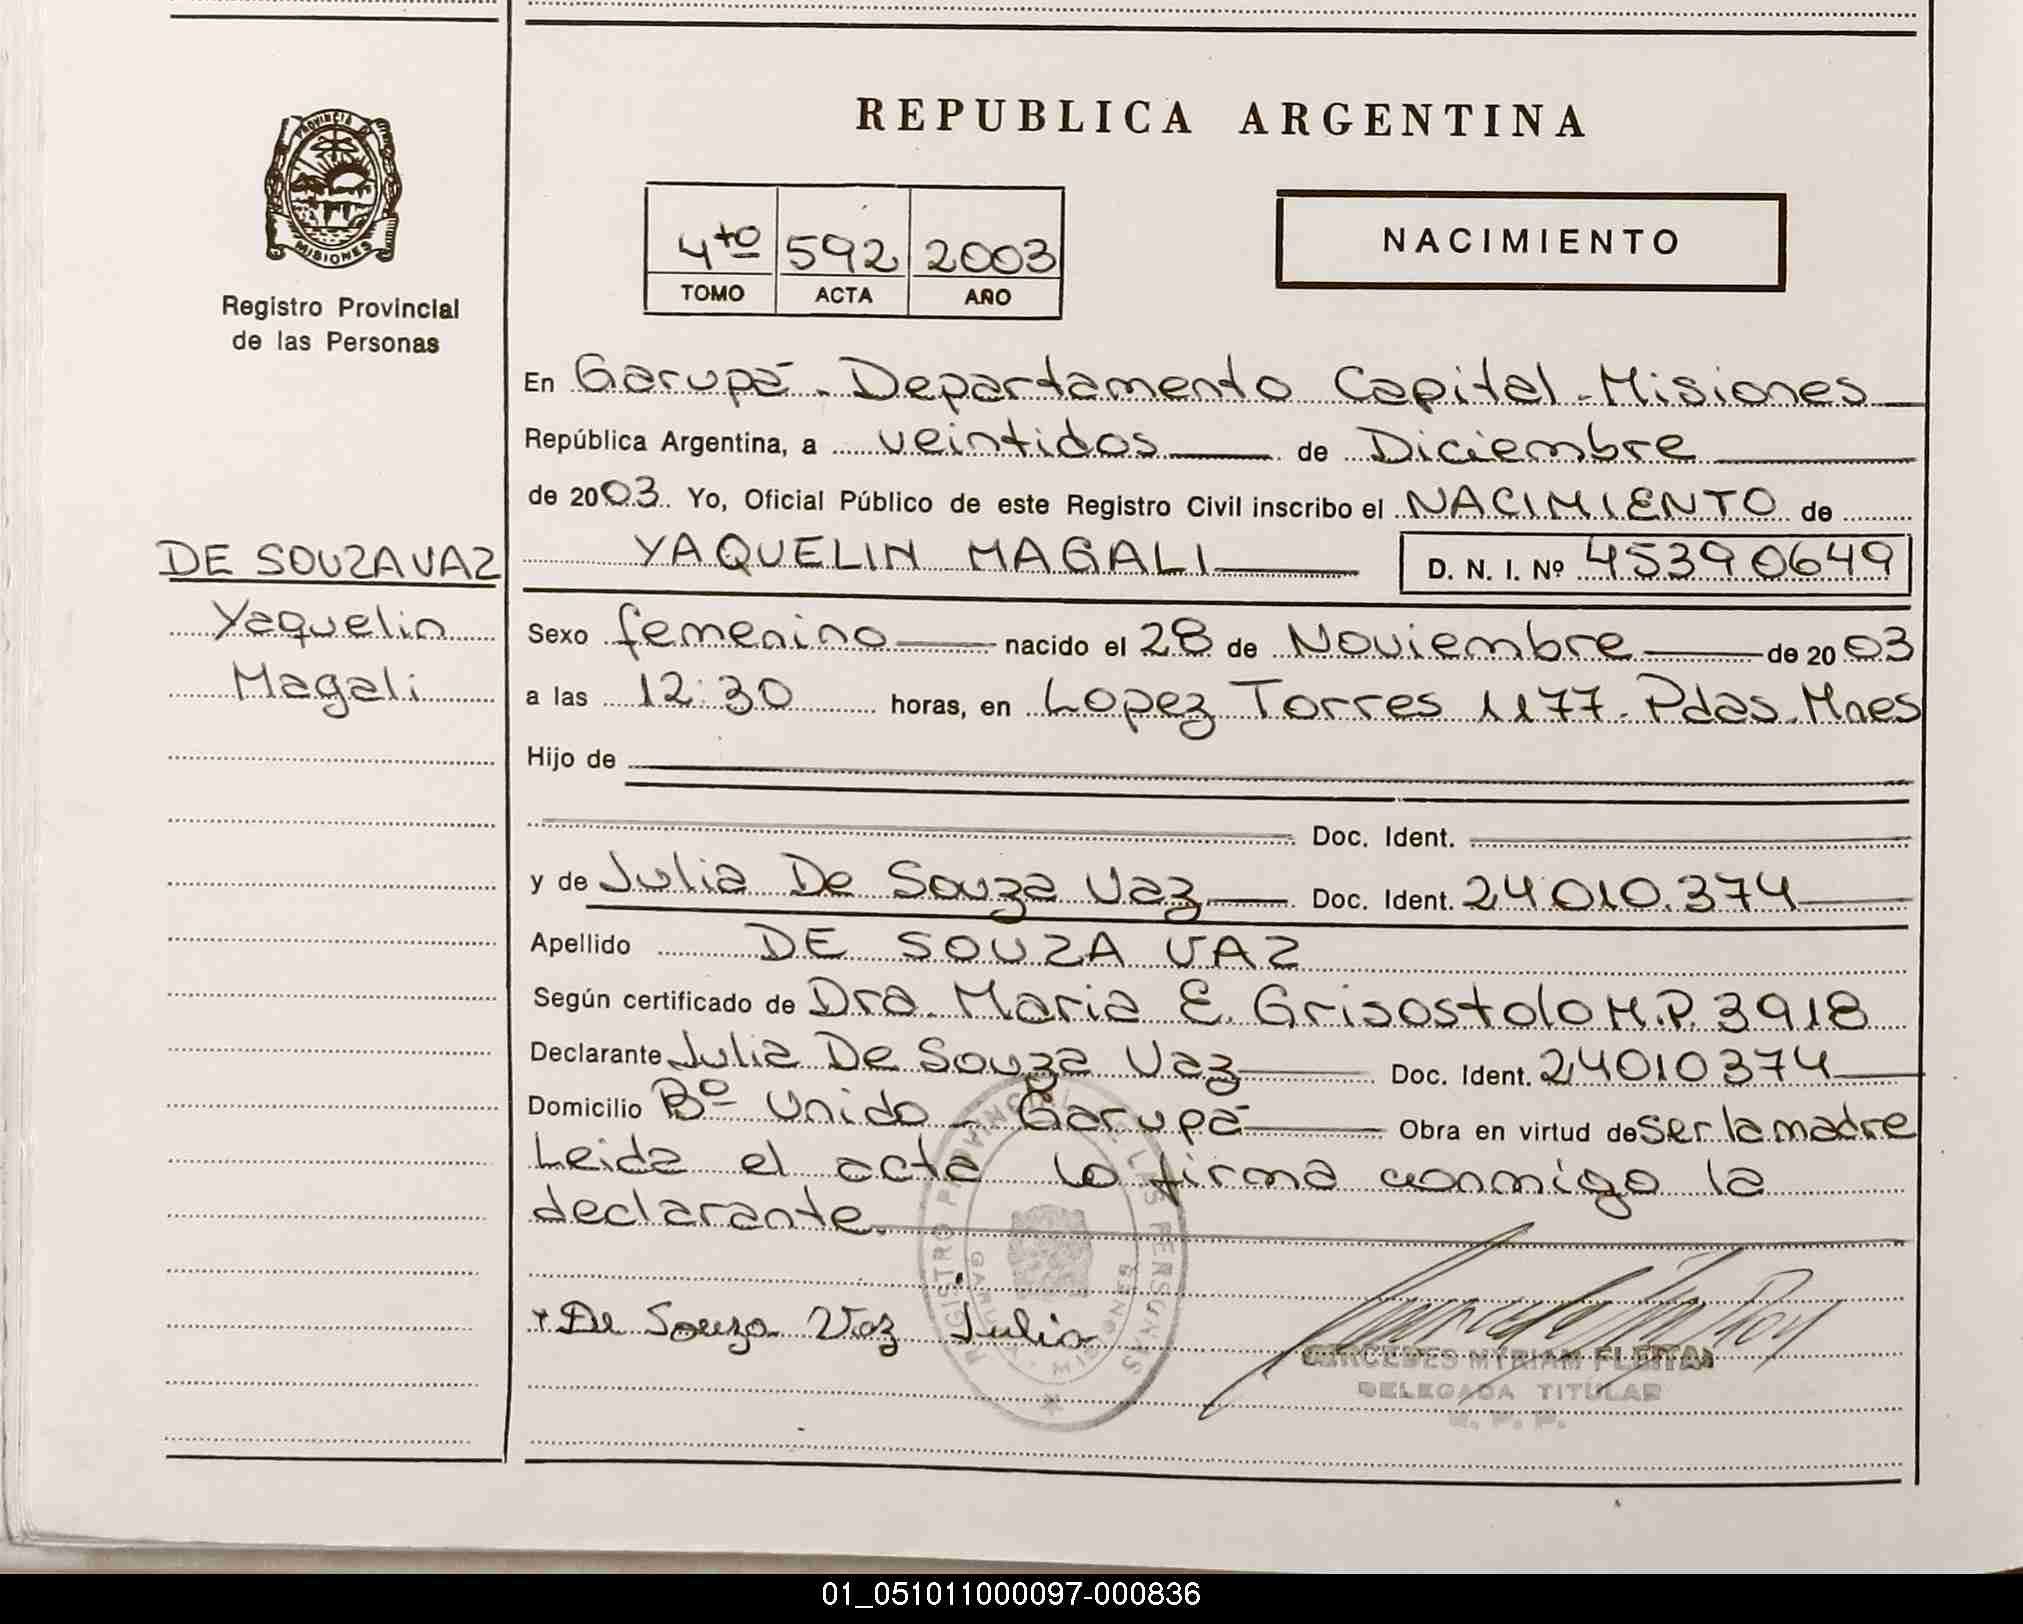 REPUBLICA ARGENTINA
PROVINCIA DE
MISIONES
Registro Provincial
de las Personas
4to 592 2003
TOMO ACTA AÑO
NACIMIENTO
En Garupá - Departamento Capital - Misiones
República Argentina, a veintidos de Diciembre
de 2003. Yo, Oficial Público de este Registro Civil inscribo el NACIMIENTO de
DE SOUZA VAZ
Yaquelin
Magali
YAQUELIN MAGALI D. N. I. Nº 45390649
Sexo femenino nacido el 28 de Noviembre de 2003
a las 12:30 horas, en Lopez Torres 1177 - Pdas - Mnes
Hijo de
Doc. Ident.
y de Julia De Souza Vaz Doc. Ident. 24010.374
Apellido DE SOUZA VAZ
Según certificado de Dra. Maria E. Grisostolo M.P. 3918
Declarante Julia De Souza Vaz Doc. Ident. 24010374
Domicilio Bº Unido - Garupá Obra en virtud de ser la madre
Leida el acta lo firma conmigo la
declarante.
REGISTRO PROVINCIAL DE LAS PERSONAS
GARUPA - MISIONES
De Souza Vaz Julia
MERCEDES MYRIAM FLEITAS
DELEGADA TITULAR
R. P. P.
01_051011000097-000836